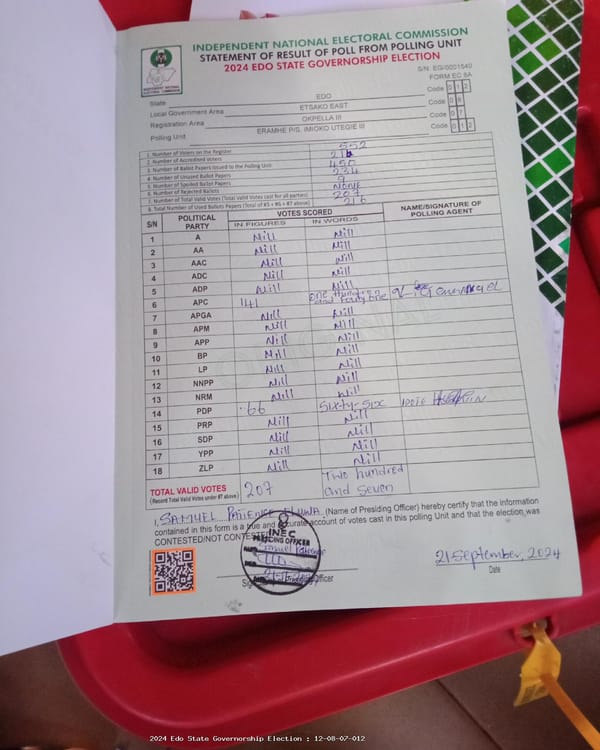 INDEPENDENT NATIONAL ELECTORAL COMMISSION
STATEMENT OF RESULT OF POLL FROM POLLING UNIT
2024 EDO STATE GOVERNORSHIP ELECTION
INDEPENDENT NATIONAL ELECTORAL COMMISSION
S/N: EG/0001540
FORM EC 8A
State EDO Code 0 1 2
Local Government Area ETSAKO EAST Code 0 8
Registration Area OKPELLA III Code 0 7
Polling Unit ERAMHE P/S, IMIOKO UTEGIE III Code 0 1 2
1. Number of Voters on the Register 552
2. Number of Accredited Voters 216
3. Number of Ballot Papers Issued to the Polling Unit 450
4. Number of Unused Ballot Papers 234
5. Number of Spoiled Ballot Papers 9
6. Number of Rejected Ballots None
7. Number of Total Valid Votes (Total Valid Votes cast for all parties) 207
8. Total Number of Used Ballots Papers (Total of #5 + #6 + #7 above) 216
S/N POLITICAL PARTY VOTES SCORED NAME/SIGNATURE OF POLLING AGENT
IN FIGURES IN WORDS
1 A Nill Nill
2 AA Nill Nill
3 AAC Nill Nill
4 ADC Nill Nill
5 ADP Nill Nill
6 APC 141 One Hundred and Fourty one
7 APGA Nill Nill
8 APM Nill Nill
9 APP Nill Nill
10 BP Nill Nill
11 LP Nill Nill
12 NNPP Nill Nill
13 NRM Nill Nill
14 PDP 66 Sixty-Six
15 PRP Nill Nill
16 SDP Nill Nill
17 YPP Nill Nill
18 ZLP Nill Nill
TOTAL VALID VOTES 207 Two hundred and Seven
(Record Total Valid Votes under #7 above)
I, SAMUEL PATIENCE (Name of Presiding Officer) hereby certify that the information
contained in this form is a true and accurate account of votes cast in this polling Unit and that the election was
CONTESTED/NOT CONTESTED
INEC
PRESIDING OFFICER
21 September, 2024
Officer
Date
2024 Edo State Governorship Election : 12-08-07-012